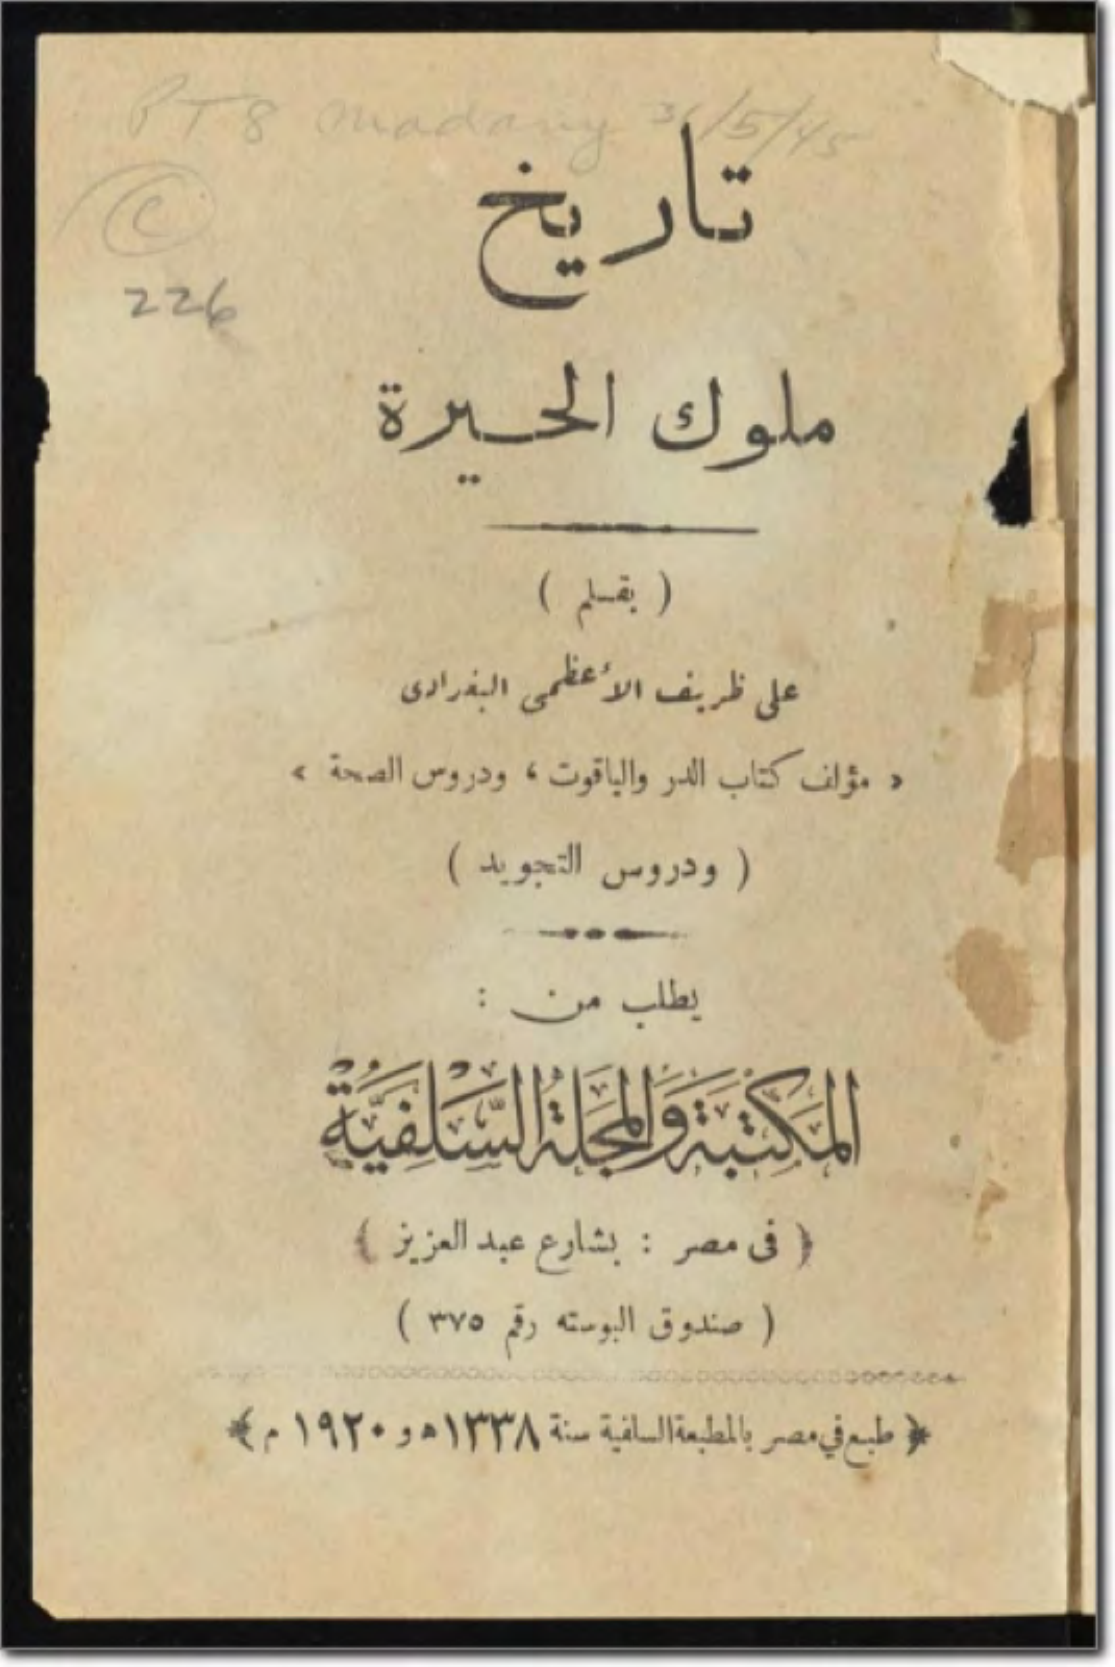 PT8 Madany 31/5/45
C
226
تاريخ
ملوك الحيرة
( بقلم )
على ظريف الأعظمى البغدادى
« مؤلف كتاب الدر والياقوت ، ودروس الصحة »
( ودروس التجويد )
يطلب من :
المَكتَبَة وَالمَجَلة السَّلَفِيَّة
( فى مصر : بشارع عبد العزيز )
( صندوق البوسته رقم ٣٧٥ )
طبع في مصر بالمطبعة السلفية سنة ١٣٣٨ هـ و ١٩٢٠ م